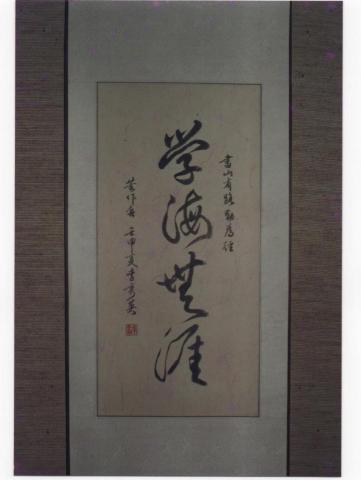 書山有路勤為徑
学海無涯
苦作舟 壬申夏李秀英